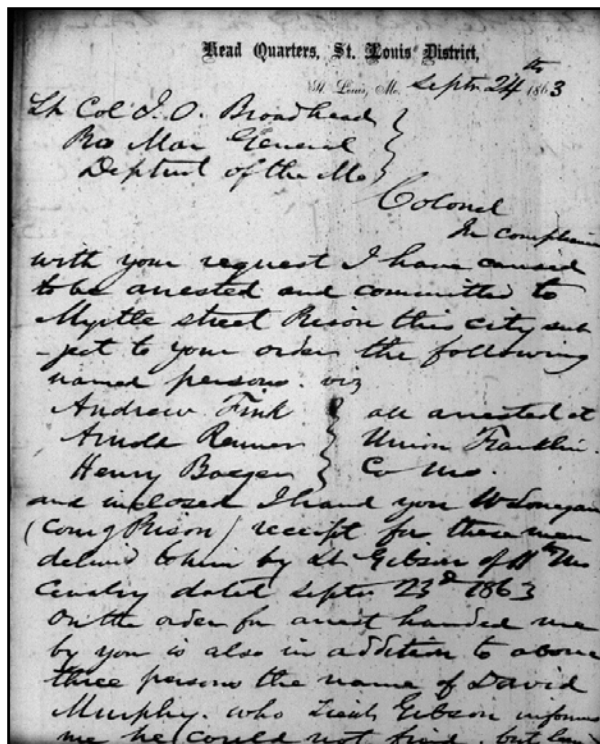 Head Quarters, St. Louis District,
St. Louis, Mo. Septr 24th 1863
Lt Col J. O. Broadhead
Pro Mar General
Deptmt of the Mo
Colonel
In compliance
with your request I have caused
to be arrested and committed to
Myrtle street Prison this city sub
-ject to your order the following
named persons. viz
Andrew Fink all arrested at
Arnold Union Franklin.
Henry Co Mo.
and inclosed I hand you
(Comg Prison) receipt for these men
delivd to him by Lt. Gibson of Mo
Cavalry dated Septr 23d 1863
On the order for arrest handed me
by you is also in addition to above
three persons the name of David
Murphy. who Lieut Gibson informs
me he could not find, but